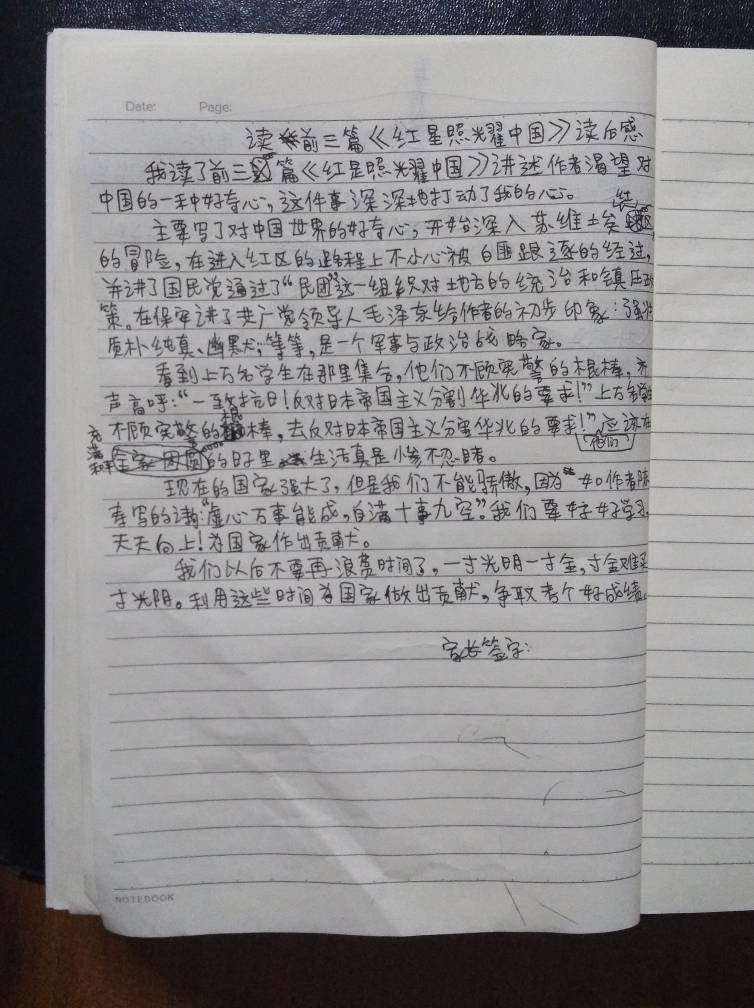 Date: Page:
读前三篇《红星照光耀中国》读后感
我读了前三篇《红星照光耀中国》讲述作者渴望对
中国的一种好奇心，这件事深深地打动了我的心。
主要写了对中国世界的好奇心，开始深入苏维埃红区
的冒险，在进入红区的路程上不小心被白匪跟逐的经过，
并讲了国民党通过了“民团”这一组织对地方的统治和镇压政
策。在保安讲了共产党领导人毛泽东给作者的初步印象：强壮
质朴纯真、幽默，等等，是一个军事与政治战略家。
看到上万名学生在那里集合，他们不顾宪警的棍棒，齐
声高呼：“一致抗日！反对日本帝国主义分割华北的要求！”上万名学生
不顾宪警的棍棒，去反对日本帝国主义分割华北的要求！”应该在
他们
充满和平
全家团圆的日子里生活真是惨不忍睹。
现在的国家强大了，但是我们不能骄傲，因为如作者陈
寿写的“虚心万事能成，自满十事九空”。我们要好好学习，
天天向上！为国家作出贡献。
我们以后不要再浪费时间了，一寸光阴一寸金，寸金难买
寸光阴。利用这些时间为国家做出贡献，争取考个好成绩。
家长签字：
NOTEBOOK